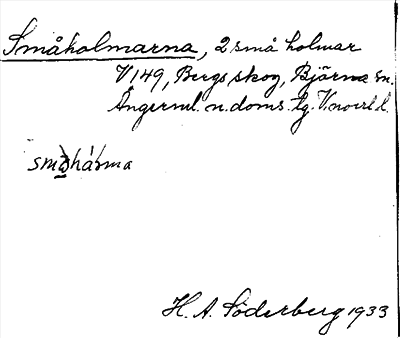 Småholmarna, 2 små holmar
V149, Bergs skog, Björna sn.
Ångerml. n. doms. tg. V.norrl. l.
H. A. Söderberg 1933